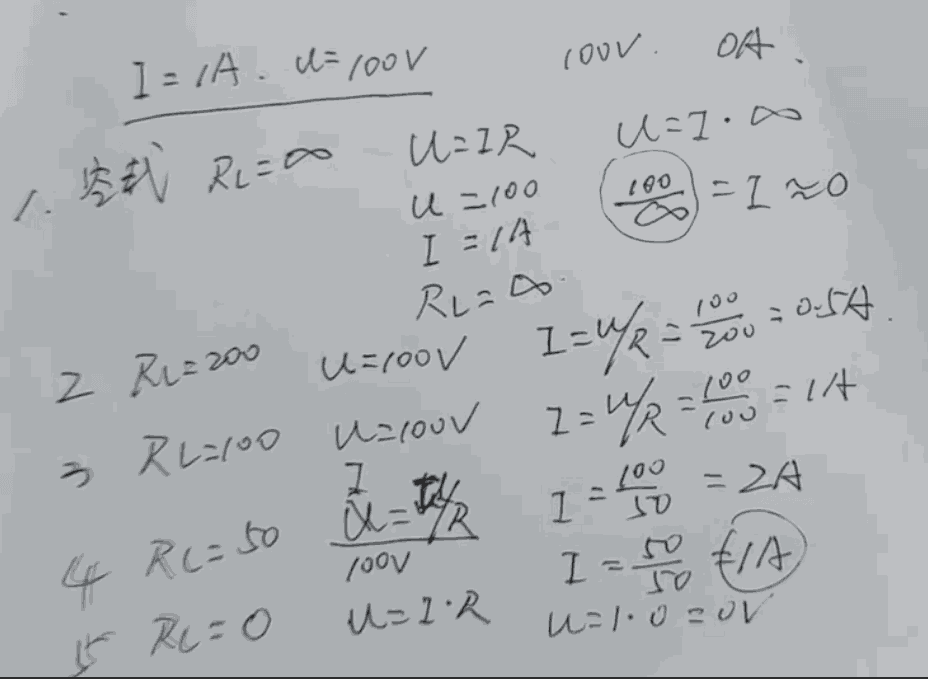 I=1A. U=100V 100V. 0A.
1. 空载 RL=∞ U=IR U=I·∞
U=100 100/∞ = I≈0
I=1A
RL=∞
2 RL=200 U=100V I=U/R=100/200=0.5A.
3 RL=100 U=100V I=U/R=100/100=1A
I
4 RL=50 U=U/R I=100/50=2A
100V I=50/50=1A
5 RL=0 U=I·R U=1·0=0V